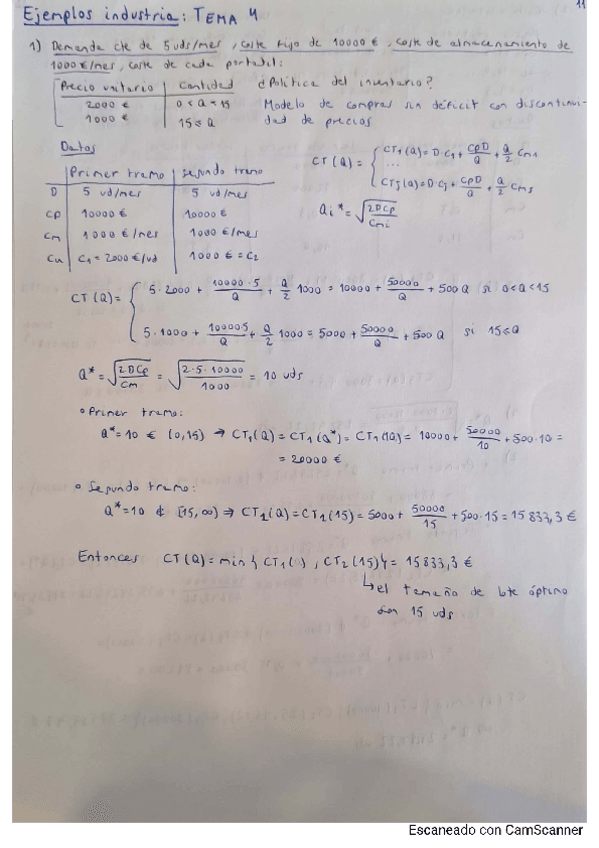 11
Ejemplos industria: TEMA 4
1) Demanda cte de 5 uds/mes, coste fijo de 10000 €, coste de almacenamiento de
1000 €/mes, coste de cada portatil:
Precio unitario | Cantidad ¿Política del inventario?
2000 € | 0 < Q < 15 Modelo de compras sin déficit con discontinui-
1000 € | 15 ≤ Q dad de precios
Datos
CT(Q) = { CT1(Q) = D·C1 + CpD/Q + Q/2 Cm1
...
CTj(Q) = D·Cj + CpD/Q + Q/2 Cmj
Qi* = √(2DCp/Cmi)
Primer tramo | segundo tramo
D | 5 ud/mes | 5 ud/mes
Cp | 10000 € | 10000 €
Cm | 1000 €/mes | 1000 €/mes
Cu | C1 = 2000 €/ud | 1000 € = C2
CT(Q) = { 5·2000 + 10000·5/Q + Q/2 1000 = 10000 + 50000/Q + 500Q si 0<Q<15
5·1000 + 10000·5/Q + Q/2 1000 = 5000 + 50000/Q + 500Q si 15≤Q
Q* = √(2DCp/Cm) = √(2·5·10000/1000) = 10 uds
• Primer tramo:
Q* = 10 ∈ (0,15) ⇒ CT1(Q) = CT1(Q*) = CT1(10) = 10000 + 50000/10 + 500·10 =
= 20000 €
• Segundo tramo:
Q* = 10 ∉ [15,∞) ⇒ CT2(Q) = CT2(15) = 5000 + 50000/15 + 500·15 = 15833,3 €
Entonces CT(Q) = min{ CT1( ), CT2(15)} = 15833,3 €
↳ el tamaño de lote óptimo
son 15 uds
Escaneado con CamScanner